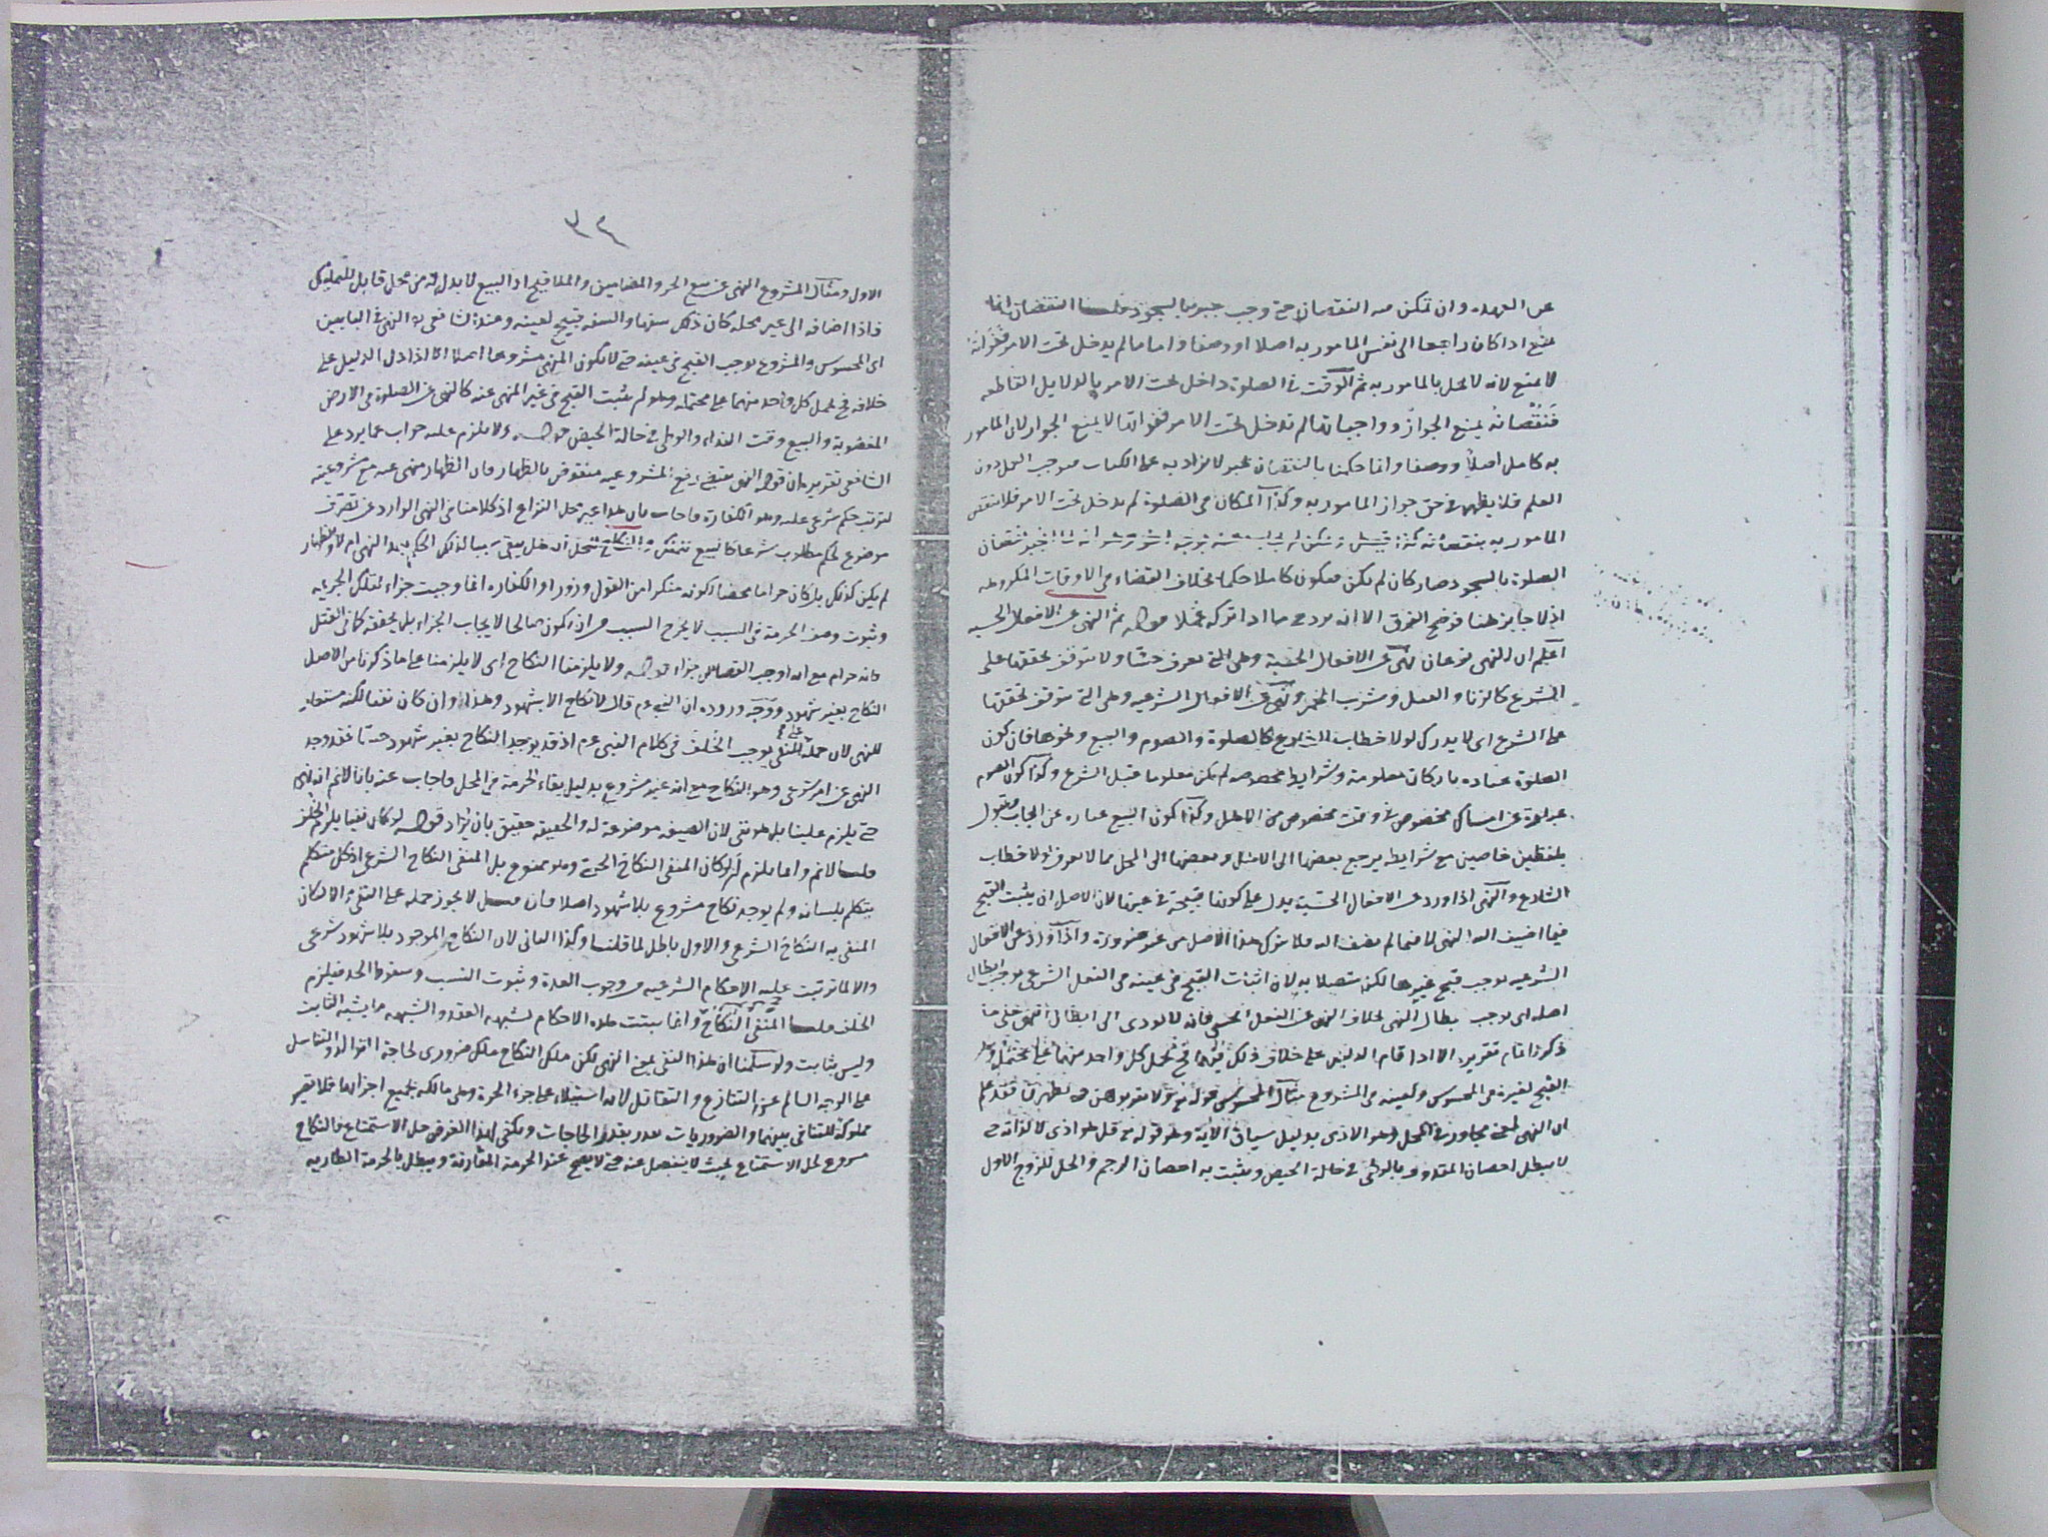 عن العهدة وان تمكن فيه النقصان حتى وجب جبرها بالسجود قلنا النقصان انما
يمنع اذا كان راجعا الى نفس المامور به اصلا او وصفا واما ما لم يدخل تحت الامر ففواته
لا يمنع لانه لا يخل بالمامور به ثم الوقت في الصلوة داخل تحت الامر بالدلايل القاطعه
فنقصانه يمنع الجواز وواجباتها لم تدخل تحت الامر ففواتها لا يمنع الجواز لان المامور
به كامل اصلا ووصفا وانما حكمنا بالنقصان بخبر لا يزاد به على الكتاب فيوجب العمل دون
العلم فلا يظهر في حق جواز المامور به وكذا المكان في الصلوة لم يدخل تحت الامر فلا ينتقص
المامور به بنقصانه
الصلوة بالسجود صار كان لم يكن فيكون كاملا حكما بخلاف القضاء في الاوقات المكروهه
اذ لا جابر هنا فوضح الفرق الا انه يرد عليه ما اذا تركه عمدا قوله ثم النهي عن الافعال الحسيه
اعلم ان النهي نوعان نهي عن الافعال الحسية وهي التي تعرف حسا ولا يتوقف تحققها على
الشرع كالزنا والقتل وشرب الخمر ونهي عن الافعال الشرعيه وهي التي يتوقف تحققها
على الشرع اى لا يدرك لولا خطاب الشارع كالصلوة والصوم والبيع ونحوها فان كون
الصلوة عباده باركان معلومة وشرايط مخصوصه لم يكن معلوما قبل الشرع وكذا كون الصوم
عبارة عن امساك مخصوص في وقت مخصوص من الاهل وكذا كون البيع عباره عن ايجاب وقبول
بلفظين خاصين مع شرايط يرجع بعضها الى الاهل وبعضها الى المحل مما لا يعرف لولا خطاب
الشارع والنهي اذا ورد عن الافعال الحسية يدل على كونها قبيحة في عينها لان الاصل ان يثبت القبح
فيما اضيف اليه النهي لا فيما لم يضف اليه فلا يترك هذا الاصل من غير ضرورة واذا ورد عن الافعال
الشرعيه يوجب قبح غيرها لكنه متصلا به لان اثبات القبح في عينه في الفعل الشرعي يوجب ابطال
اصله اى يوجب بطال النهي بخلاف النهي عن الفعل الحسي فانه لا يودي الى ابطال النهي على ما
ذكرنا تمام تقريره الا اذا قام الدليل على خلاف ذلك فيهما فح يحمل كل واحد منهما على محتمله وهو
القبح لغيره في المحسوس ولعينه في المشروع مثال المحسوس قوله تع ولا تقربوهن حتى يطهرن فقد علم
ان النهي لمعنى مجاور في المحل وهو الاذى بدليل سياق الآية وهو قوله تع قل هو اذى لا لذاته حتى
لا يبطل احصان القذف بالوطى في حالة الحيض ويثبت به احصان الرجم والحل للزوج الاول
٣٤
الاول ومثال المشروع النهي عن بيع الحر والمضامين والملاقيح اذ البيع لا بد له من محل قابل للتمليك
فاذا اضافه الى غير محله كان ذلك سفها والسفه قبيح لعينه وعند الشافعي ره النهي في البابين
اى المحسوس والمشروع يوجب القبح في عينه حتى لا يكون المنهي مشروعا اصلا الا اذا دل الدليل على
خلافه فح يحمل كل واحد منهما على محتمله وهو ثبت القبح في غير المنهي عنه كالنهي عن الصلوة في الارض
المغصوبة والبيع وقت النداء والوطى في حالة الحيض قوله ولا يلزم عليه جواب عما يرد على
الشافعي تقريره ان قوله النهي يقتضي رفع المشروعيه منقوض بالظهار فان الظهار منهي عنه مع مشروعيته
لترتب حكم شرعي عليه وهو الكفارة فاجاب بان هذا غير محل النزاع اذ كلامنا في النهي الوارد عن تصرف
موضوع لحكم مطلوب شرعا كالبيع للتملك والنكاح للحل انه هل يبقى سببا لذلك الحكم بعد النهي ام لا والظهار
لم يكن كذلك بل كان حراما محضا لكونه منكرا من القول وزورا والكفاره انما وجبت جزاء لتلك الجريمه
وثبوت وصف الحرمة في السبب لا يخرج السبب من ان يكون صالحا لايجاب الجزاء بل يحققه كما في القتل
فانه حرام مع انه اوجب القصاص جزاء قوله ولا يلزمنا النكاح اى لا يلزمنا على ما ذكرنا من الاصل
النكاح بغير شهود ووجه وروده ان النبي عم قال لا نكاح الا بشهود وهذا وان كان نفيا لكنه مستعار
للنهي لان حمله على النفي يوجب الخلف في كلام النبي عم اذ قد يوجد النكاح بغير شهود حسا فقد وجد
النهي عن امر شرعي وهو النكاح مع انه غير مشروع بدليل بقاء الحرمة في المحل فاجاب عنه بانا لا نم انه نهي
حتى يلزم علينا بل هو نفي لان الصيغه موضوعة له والحقيقه حقيق بان يراد قوله لو كان نفيا يلزم الخلف
قلنا لا نم وانما يلزم ان لو كان المنفي النكاح الحسي وهو ممنوع بل المنفي النكاح الشرعي اذ كل متكلم
يتكلم بلسانه ولم يوجد نكاح مشروع بلا شهود اصلا فان قيل لا يجوز حمله على النفي لانه لا كان
المنفي به النكاح الشرعي والاول باطل لما قلنا وكذا الثاني لان النكاح الموجود بلا شهود شرعي
والا لما ترتبت عليه الاحكام الشرعيه من وجوب العدة وثبوت النسب وسقوط الحد فيلزم
الخلف قلنا المنفي النكاح وانما يثبت هذه الاحكام لشبهه العقد والشبهه ما يشبه الثابت
وليس بثابت ولو سلمنا ان هذا النفي بمعنى النهي لكن ملك النكاح ملك ضروري لحاجة التوالد والتناسل
على الوجه السالم عن التنازع والتقاتل لانه استيلاء على جزء الحرة وهي مالكه بجميع اجزائها فلا تصير
مملوكة للتنافي بينهما والضروريات تقدر بقدر الحاجات ويكفي لهذا الغرض حل الاستمتاع فالنكاح
مشروع لحل الاستمتاع بحيث لا ينفصل عنه حتى لا يصح عند الحرمة المقارنة ويبطل بالحرمة الطاريه